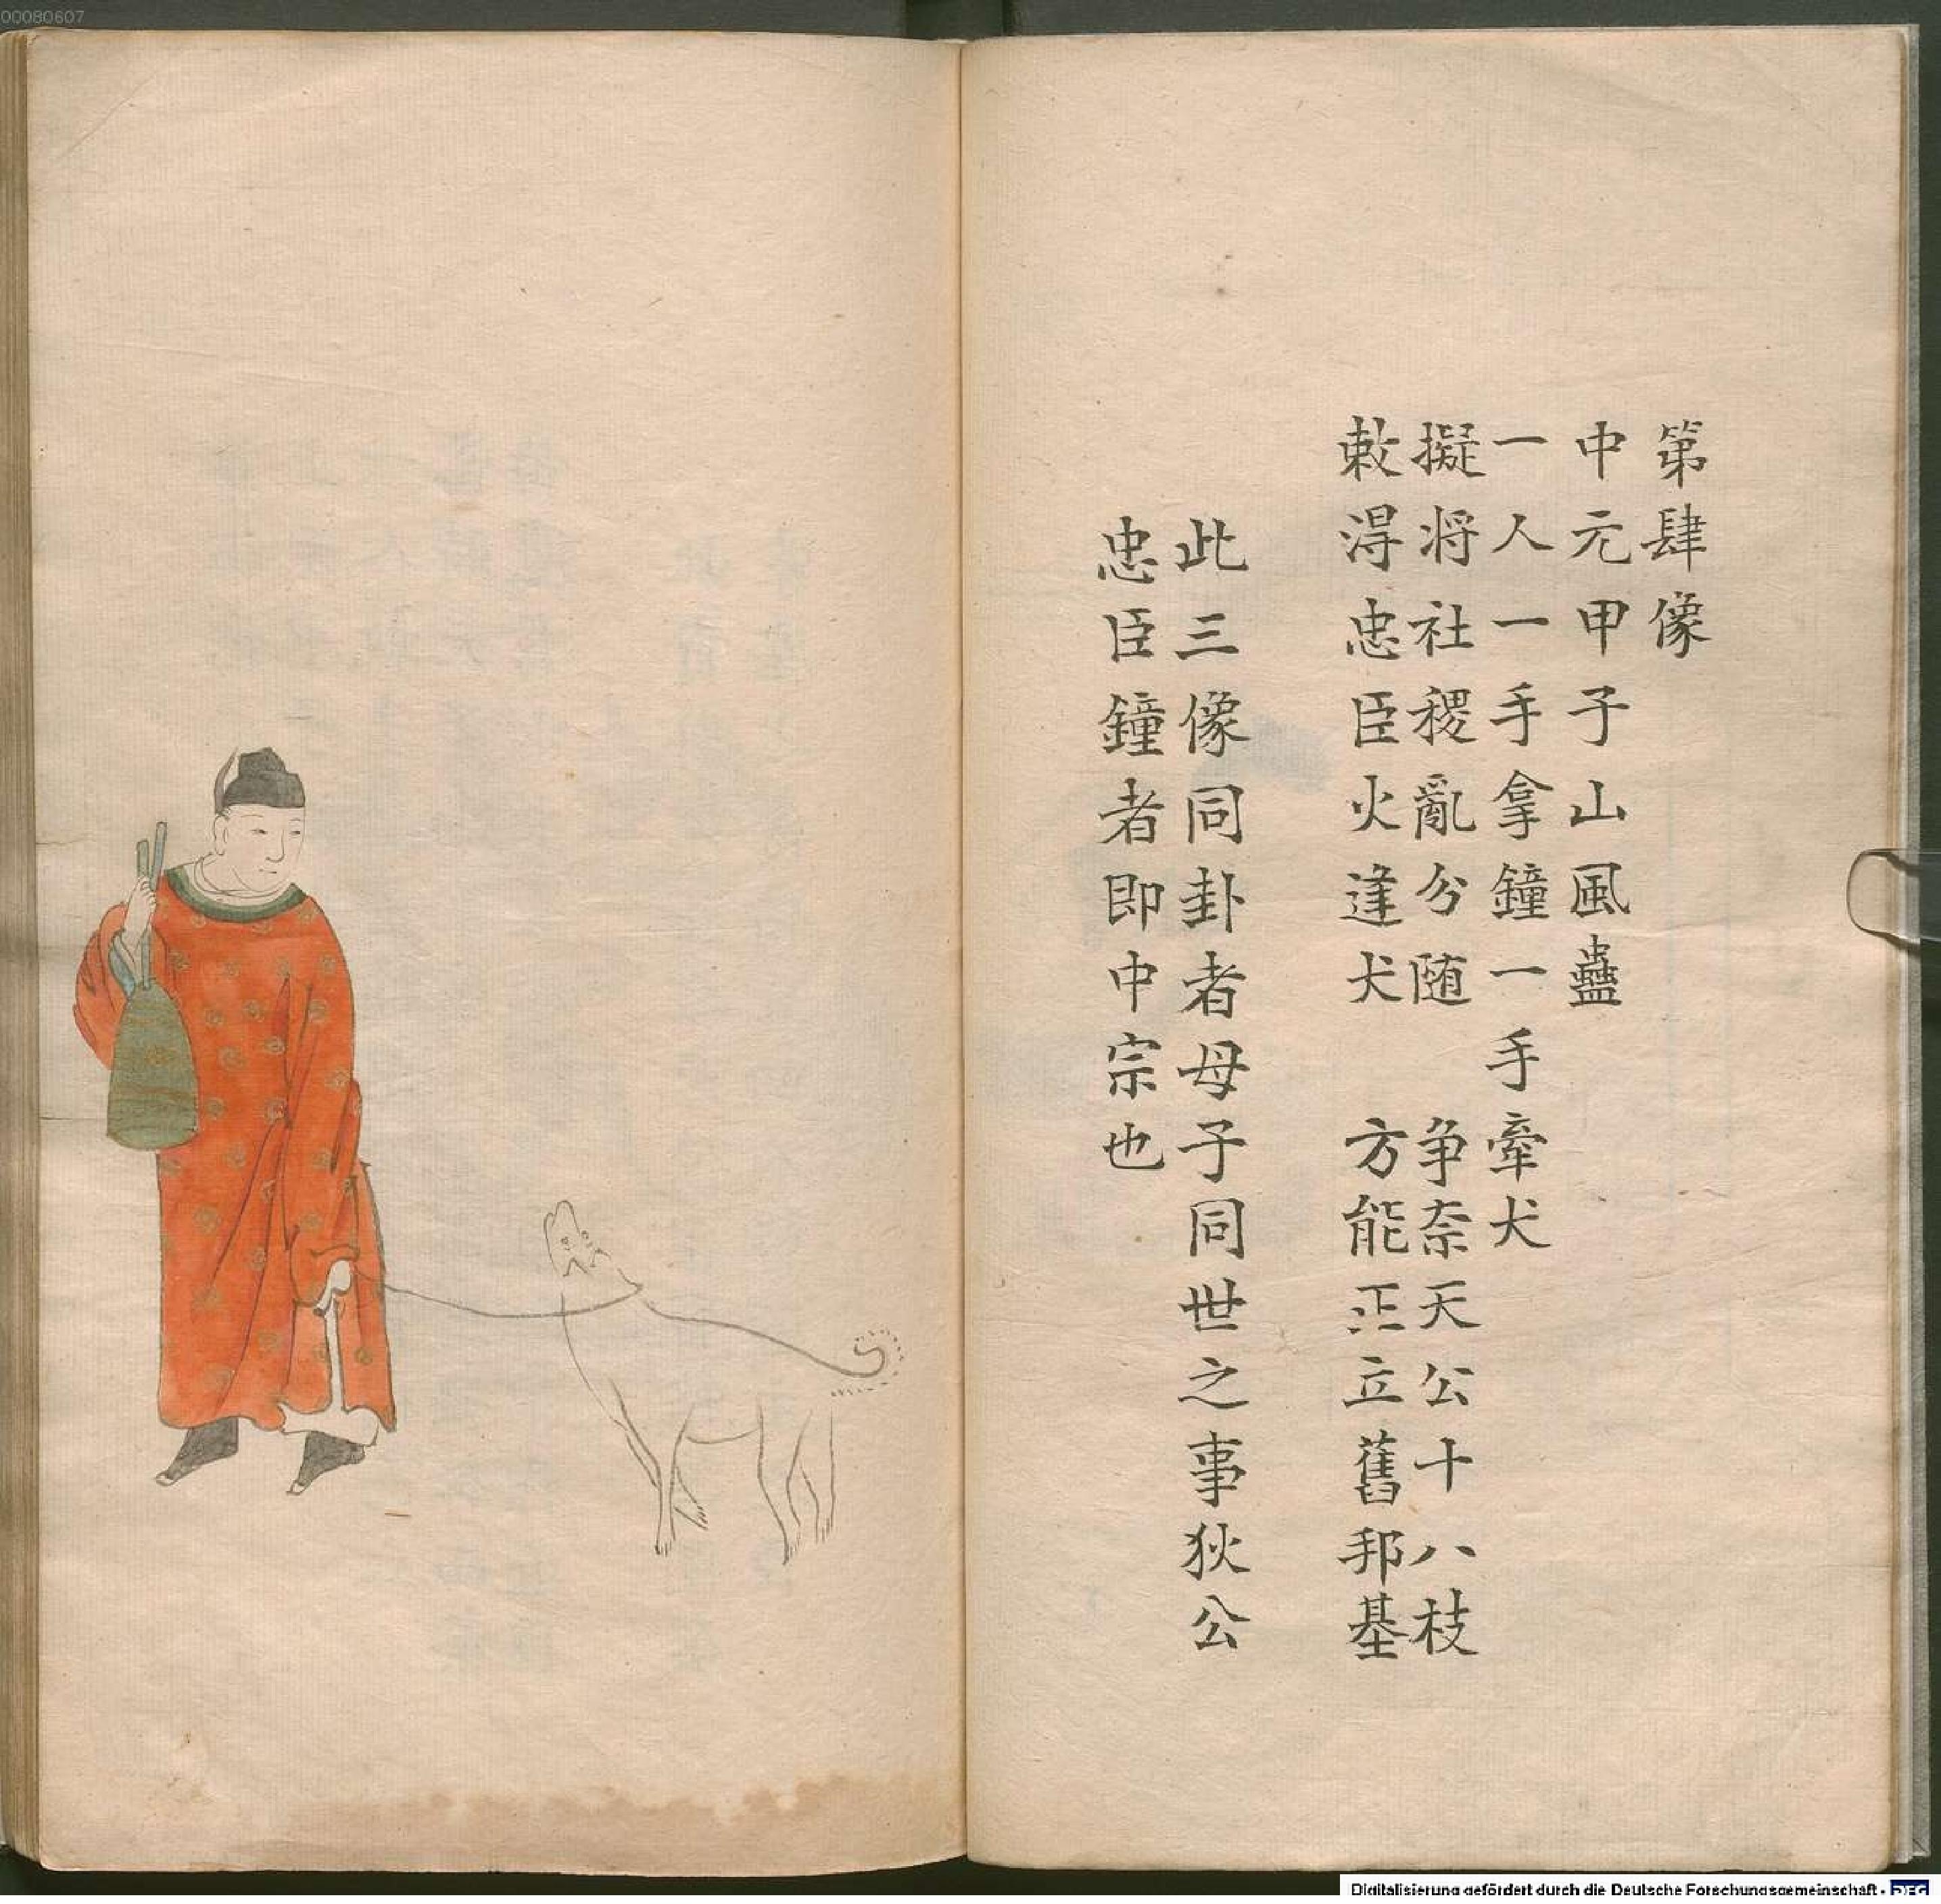 00080607
第肆像
中元甲子山風蠱
一人一手拿鐘一手牽犬
擬将社稷亂分随　争奈天公十八枝
敕淂忠臣火逢犬　方能正立舊邦基
此三像同卦者母子同世之事狄公
忠臣鐘者即中宗也
Digitalisierung gefördert durch die Deutsche Forschungsgemeinschaft - DFG